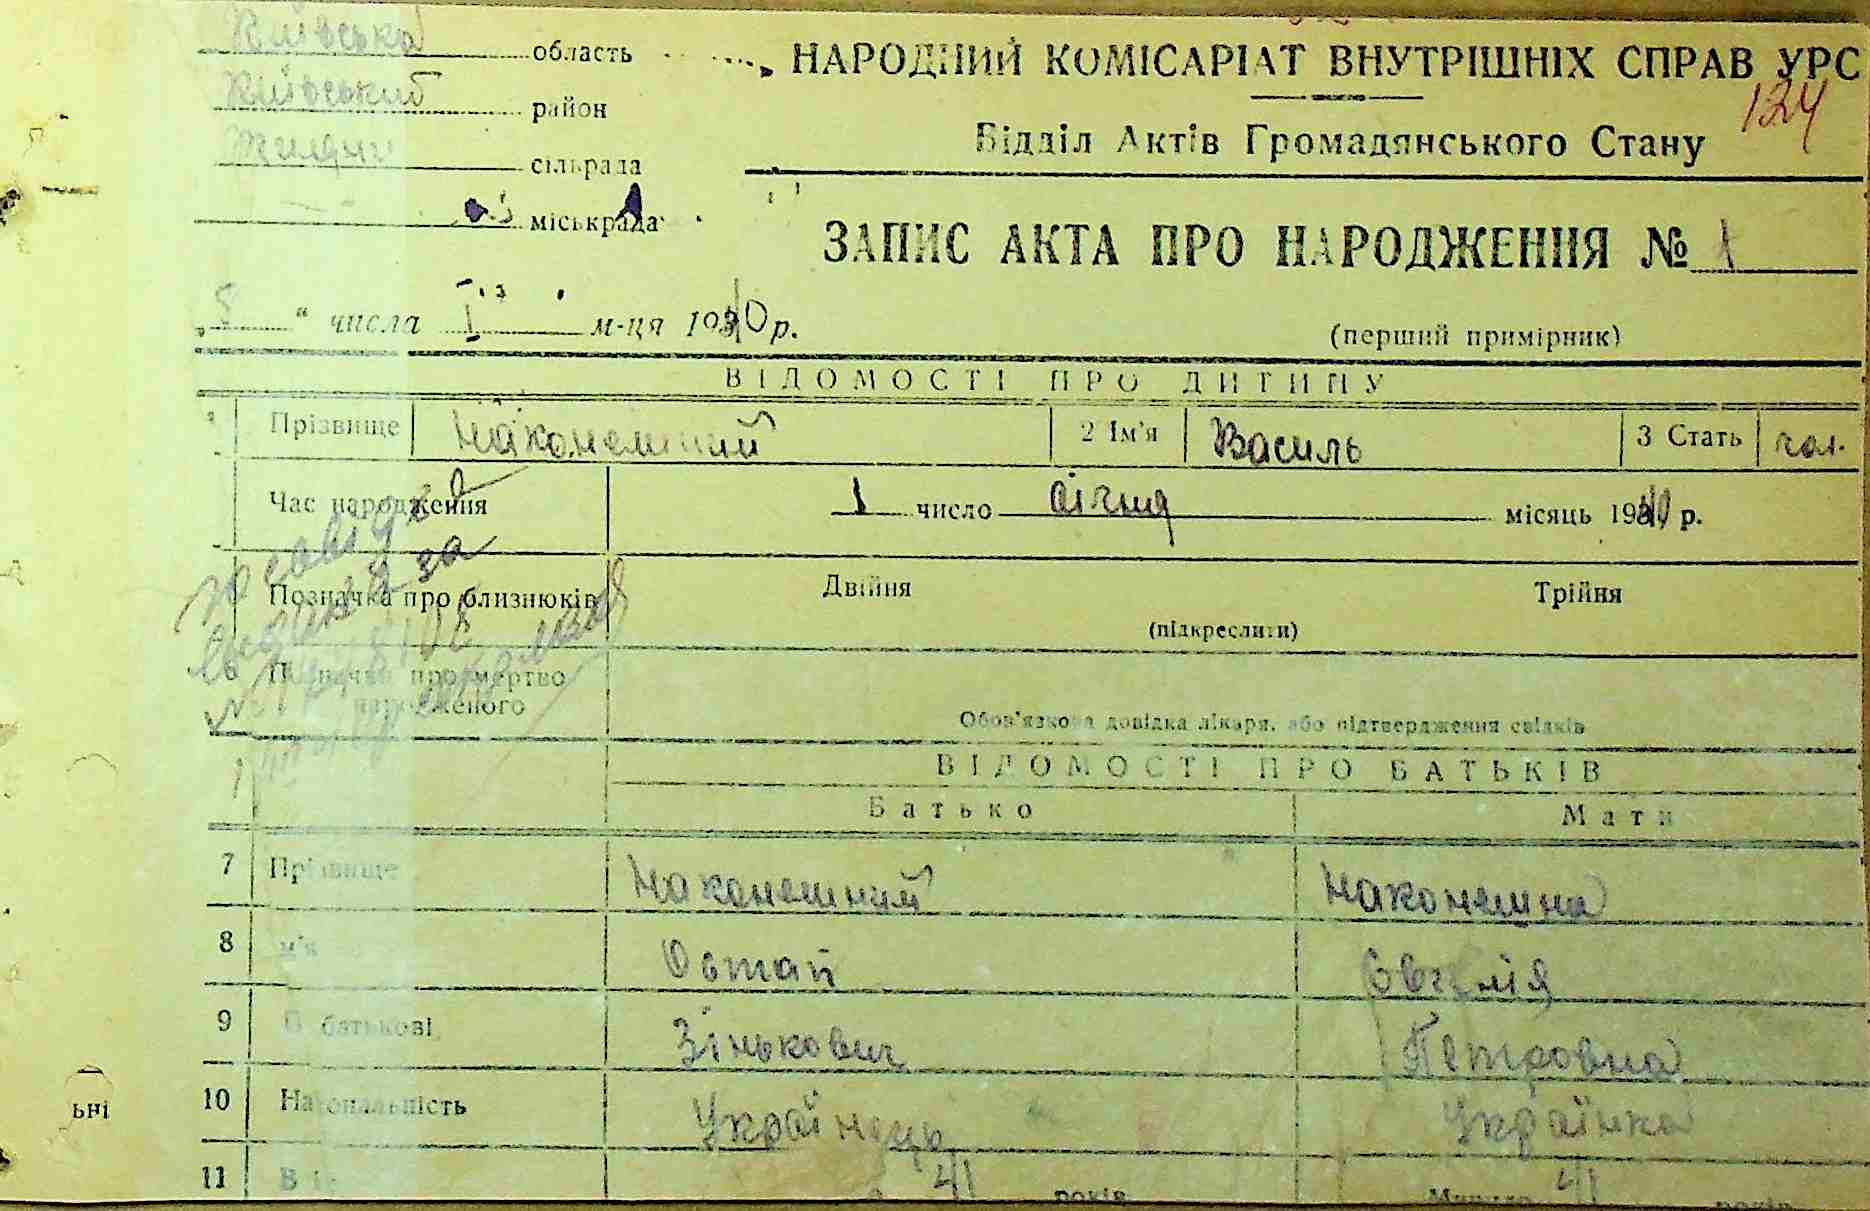 Київська область
Київський район
Жиляни сільрада
міськрада
НАРОДНИЙ КОМІСАРІАТ ВНУТРІШНІХ СПРАВ УРС
124
Відділ Актів Громадянського Стану
ЗАПИС АКТА ПРО НАРОДЖЕННЯ № 1
„5“ числа I м-ця 1940 р.
(перший примірник)
ВІДОМОСТІ ПРО ДИТИНУ
Прізвище Наконешний 2 Ім'я Василь 3 Стать чол.
Час народження 1 число січня місяць 1940 р.
Позначка про близнюків Двійня Трійня
(підкреслити)
Позначка про мертво
народженого
Обов'язкова довідка лікаря, або підтвердження свідків
ВІДОМОСТІ ПРО БАТЬКІВ
Батько Мати
7 Прізвище Наконешний Наконешна
8 м'я Остап Євгенія
9 П батькові Зінькович Петровна
10 Національність Українець Українка
11 41 років 41 років
ьні